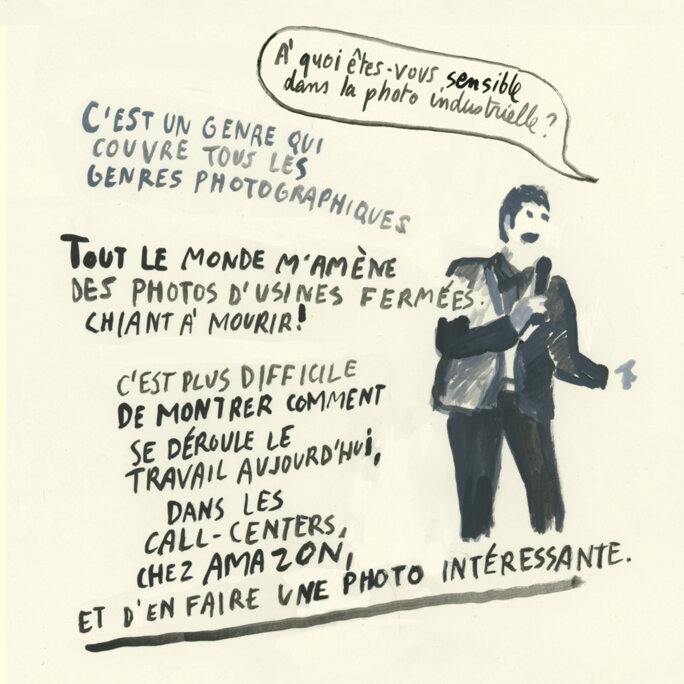 À quoi êtes-vous sensible
dans la photo industrielle ?
C'EST UN GENRE QUI
COUVRE TOUS LES
GENRES PHOTOGRAPHIQUES
TOUT LE MONDE M'AMÈNE
DES PHOTOS D'USINES FERMÉES.
CHIANT À MOURIR!
C'EST PLUS DIFFICILE
DE MONTRER COMMENT
SE DÉROULE LE
TRAVAIL AUJOURD'HUI,
DANS LES
CALL-CENTERS,
CHEZ AMAZON,
ET D'EN FAIRE UNE PHOTO INTÉRESSANTE.